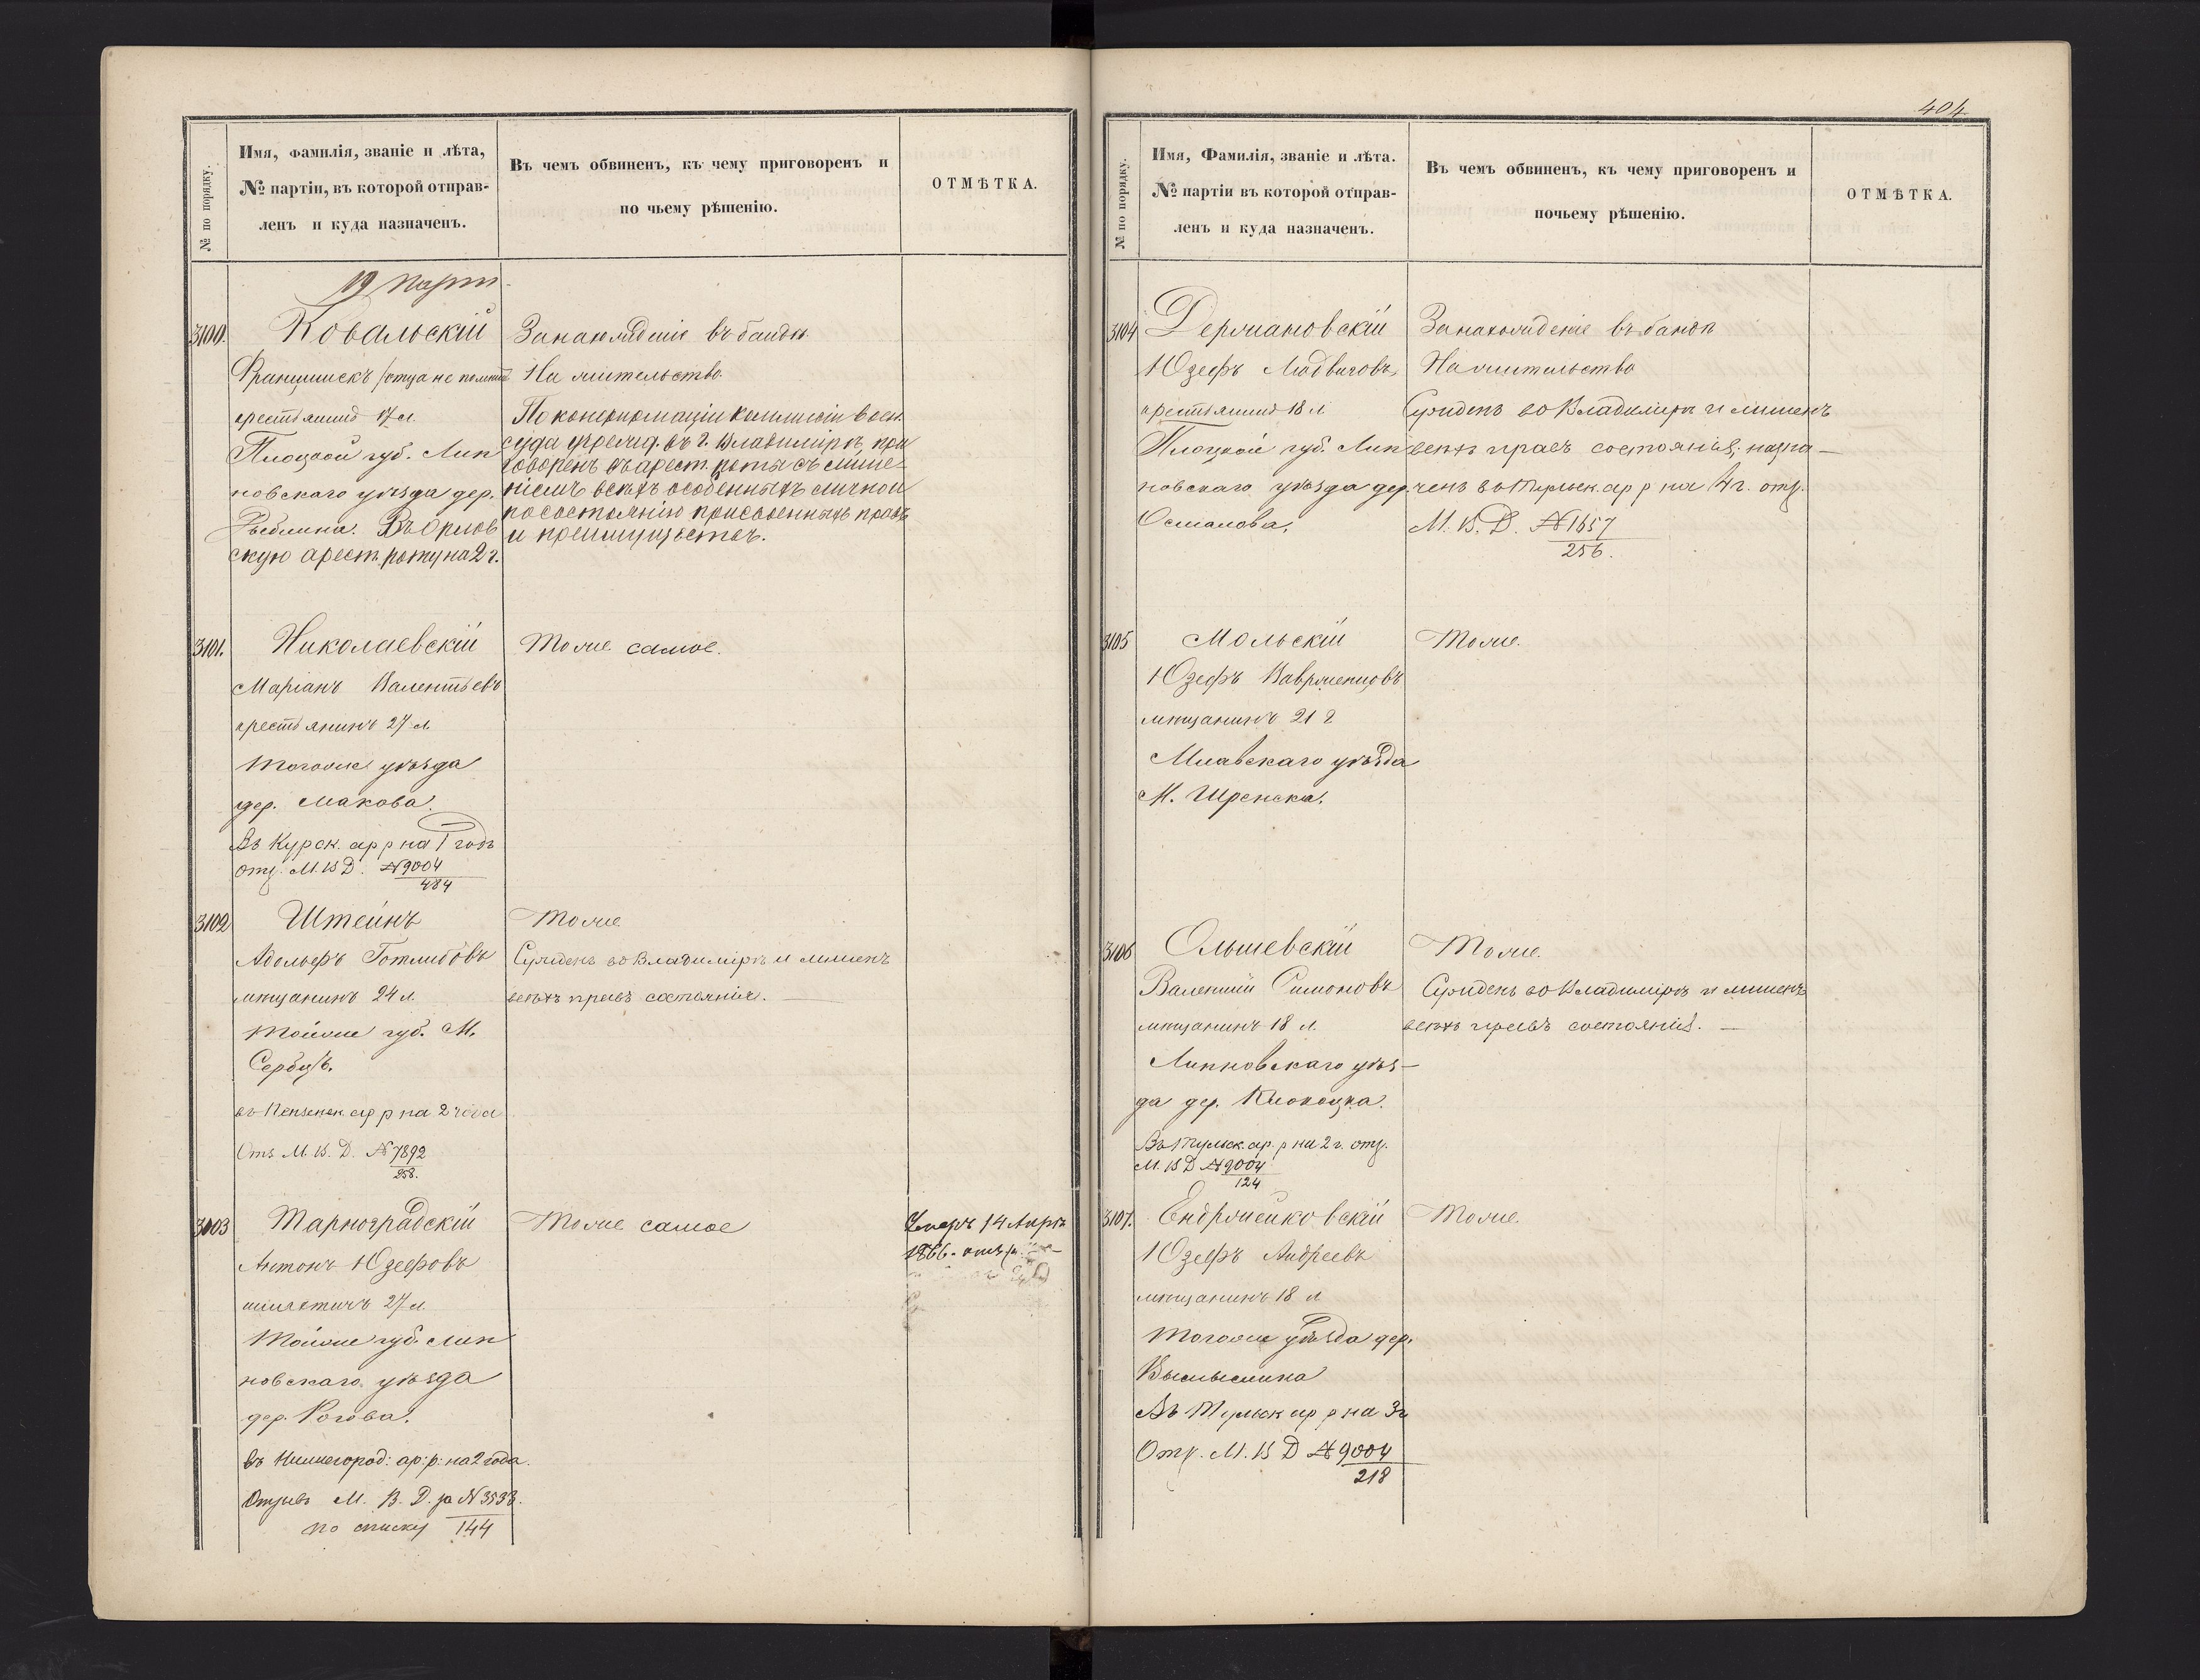 404
№ по порядку.
Имя, фамилія, званіе и лѣта,
№ партіи, въ которой отправ-
ленъ и куда назначенъ.
Въ чемъ обвиненъ, къ чему приговоренъ и
по чьему рѣшенію.
ОТМѢТКА.
19 Парті
3100.
Ковальскій
Францишекъ /отца не помнитъ
крестьянинъ 17 л.
Плоцкой губ. Лип
новскаго уѣзда дер.
Въ Орлов
скую арест. роту на 2 г.
За нахожденіе въ бандѣ
На жительство.
По конфирмаціи Коммисіи воен.
суда учрежд. въ г. Владимірѣ, при
говоренъ въ арест. роты съ лише-
ніемъ всѣхъ особенныхъ лично и
по состоянію присвоенныхъ правъ
и преимуществъ.
3101.
Николаевскій
Маріанъ Валентьевъ
крестьянинъ 27 л.
тогоже уѣзда
дер. Макова.
Въ Курск. ар р на 1 годъ
отз. М. В Д. № 9004
484
Тоже самое.
3102
Штейнъ
Адольфъ Готлибовъ
мѣщанинъ 24 л.
тойже губ. М.
Сербцъ.
въ Пензенск. ар р на 2 года
Отз М. В. Д. № 7892
258.
Тоже
Сужденъ во Владимірѣ и лишенъ
всѣхъ правъ состоянія.
3103
Тарноградскій
Антонъ Юзефовъ
шляхтичъ 27 л.
тойже губ. Лип
новскаго уѣзда
дер. Рогова.
въ Нижегород: ар: р: на 2 года.
Отзывъ М. В. Д. за № 3533.
по списку 144
Тоже самое
Умеръ 14 Апрѣ
1866.
№ по порядку.
Имя, Фамилія, званіе и лѣта.
№ партіи въ которой отправ-
ленъ и куда назначенъ.
Въ чемъ обвиненъ, къ чему приговоренъ и
почьему рѣшенію.
ОТМѢТКА.
3104
Держановскій
Юзефъ Людвиговъ,
крестьянинъ 18 л.
Плоцкой губ. Лип
новскаго уѣзда дер.
Осмалова.
За нахожденіе въ бандѣ
На жительство
Сужденъ во Владимірѣ и лишенъ
всѣхъ правъ состоянія; назна-
ченъ въ Тульск. ар р на 4 г. отз.
М. В. Д. № 1657
256.
3105
Мольскій
Юзефъ Ваврженцовъ
мѣщанинъ 21 г
Млавскаго уѣзда
М. Шренска.
Тоже.
3106
Ольшевскій
Валентій Симоновъ
мѣщанинъ 18 л.
Липновскаго уѣз-
да дер. Клокоцка.
Въ Тульск. ар. р на 2 г. отз.
М. В Д № 9004
124
Тоже.
Сужденъ во Владимірѣ и лишенъ
всѣхъ правъ состоянія.
3107.
Ендржейковскій
Юзефъ Андреевъ
мѣщанинъ 18 л
тогоже уѣзда дер.
Вымыслина
Въ Тульск ар р на 3 г
Отз. М. В Д № 9004
218
Тоже.